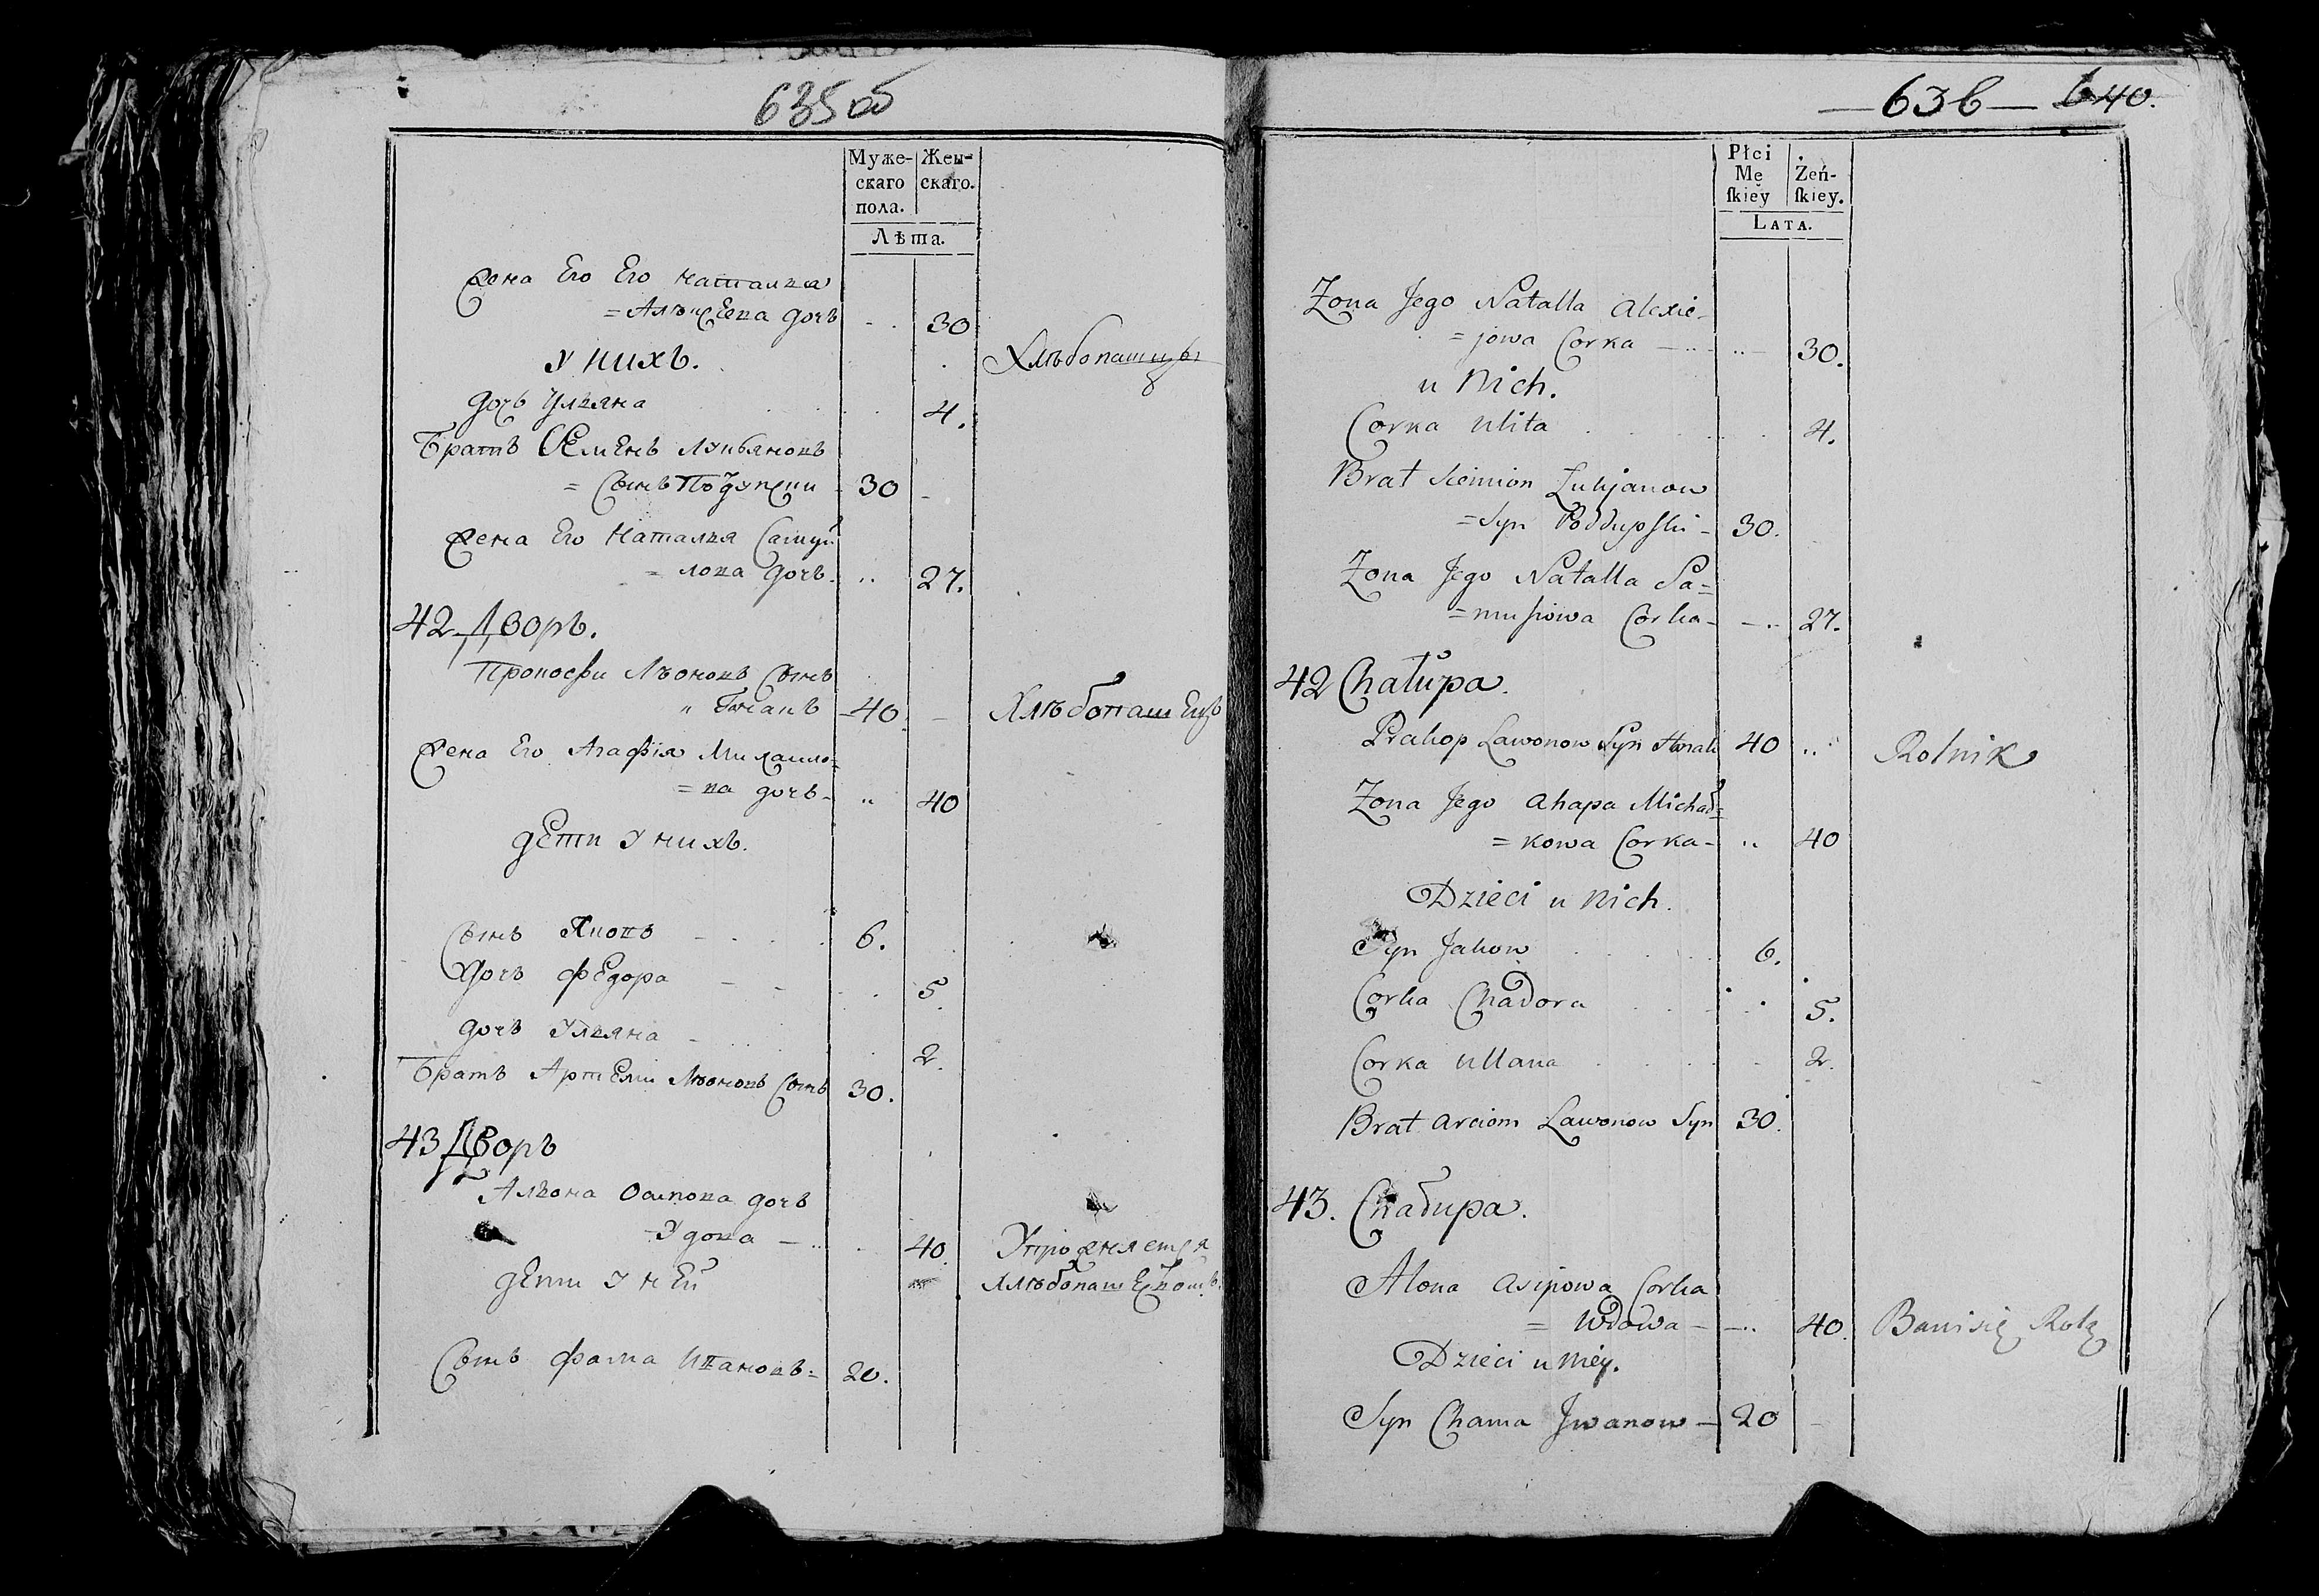 635 об
Муже-
скаго
пола.
Жен-
скаго.
Лѣта.
Жена Его Его наталка
=Алексѣева дочь - . 30
У нихъ. Хлѣбопашцы
дочь Ульяна 4.
Братъ Семенъ Лукьяновъ
= Сынъ 30
Жена Его Наталья Самуй
= лова дочь. .. 27.
42 Дворъ.
Прокофи Лѣоновъ Сынъ
40 Хлѣбопашецъ
Жена Его Агафія Михаило=
= ва дочь- .. 40
дети У нихъ.
Сынъ Яковъ 6.
Дочь федора 5.
дочь Ульяна 2.
Братъ Артеми Лѣоновъ Сынъ 30.
43 Дворъ
Алѣона Осипова дочь
Удова 40. Упражняется
дети У ней хлѣбопашествомъ.
Сынъ фама Ивановъ= 20.
— 636 — 640.
Płci
Mę
ſkiey
Żeń-
ſkiey.
LATA.
Zona Jego Natalla Alexie-
= jowa Corka 30.
u Nich.
Corka Ulita 4.
Brat Siemion Łukjanow
= Syn 30.
Zona Jego Natalla Sa=
= musiowa Corka 27.
42 Chałupa.
Prakop Lawonow Syn 40 .. Rolnik
Zona Jego Ahapa Michał=
= kowa Corka- .. 40
Dzieci u Nich.
Syn Jakow 6.
Corka Chadora 5.
Corka Ullana 2.
Brat Arciom Lawonow Syn 30.
43. Chałupa.
Alona Asipowa Corka
= Wdowa 40. Bawi się Rolą
Dzieci u Niéy.
Syn Chama Jwanow 20